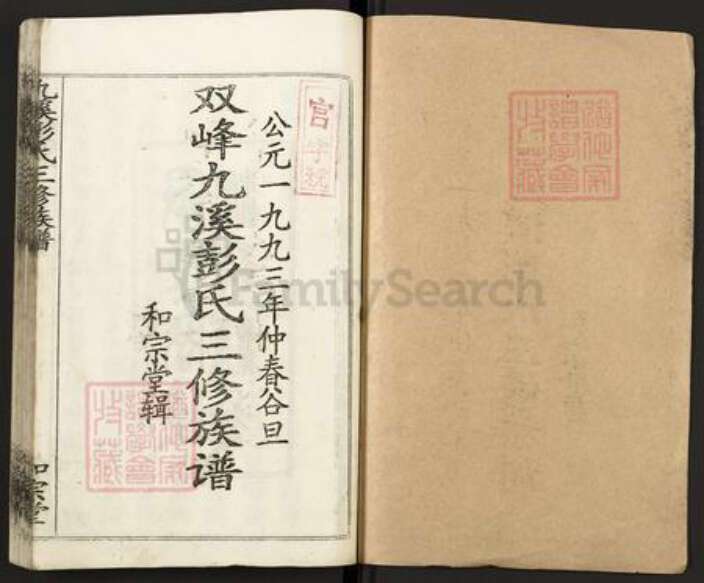 宫字號
公元一九九三年仲春谷旦
双峰九溪彭氏三修族谱
和宗堂辑
九溪彭氏三修族谱
和宗堂
FamilySearch